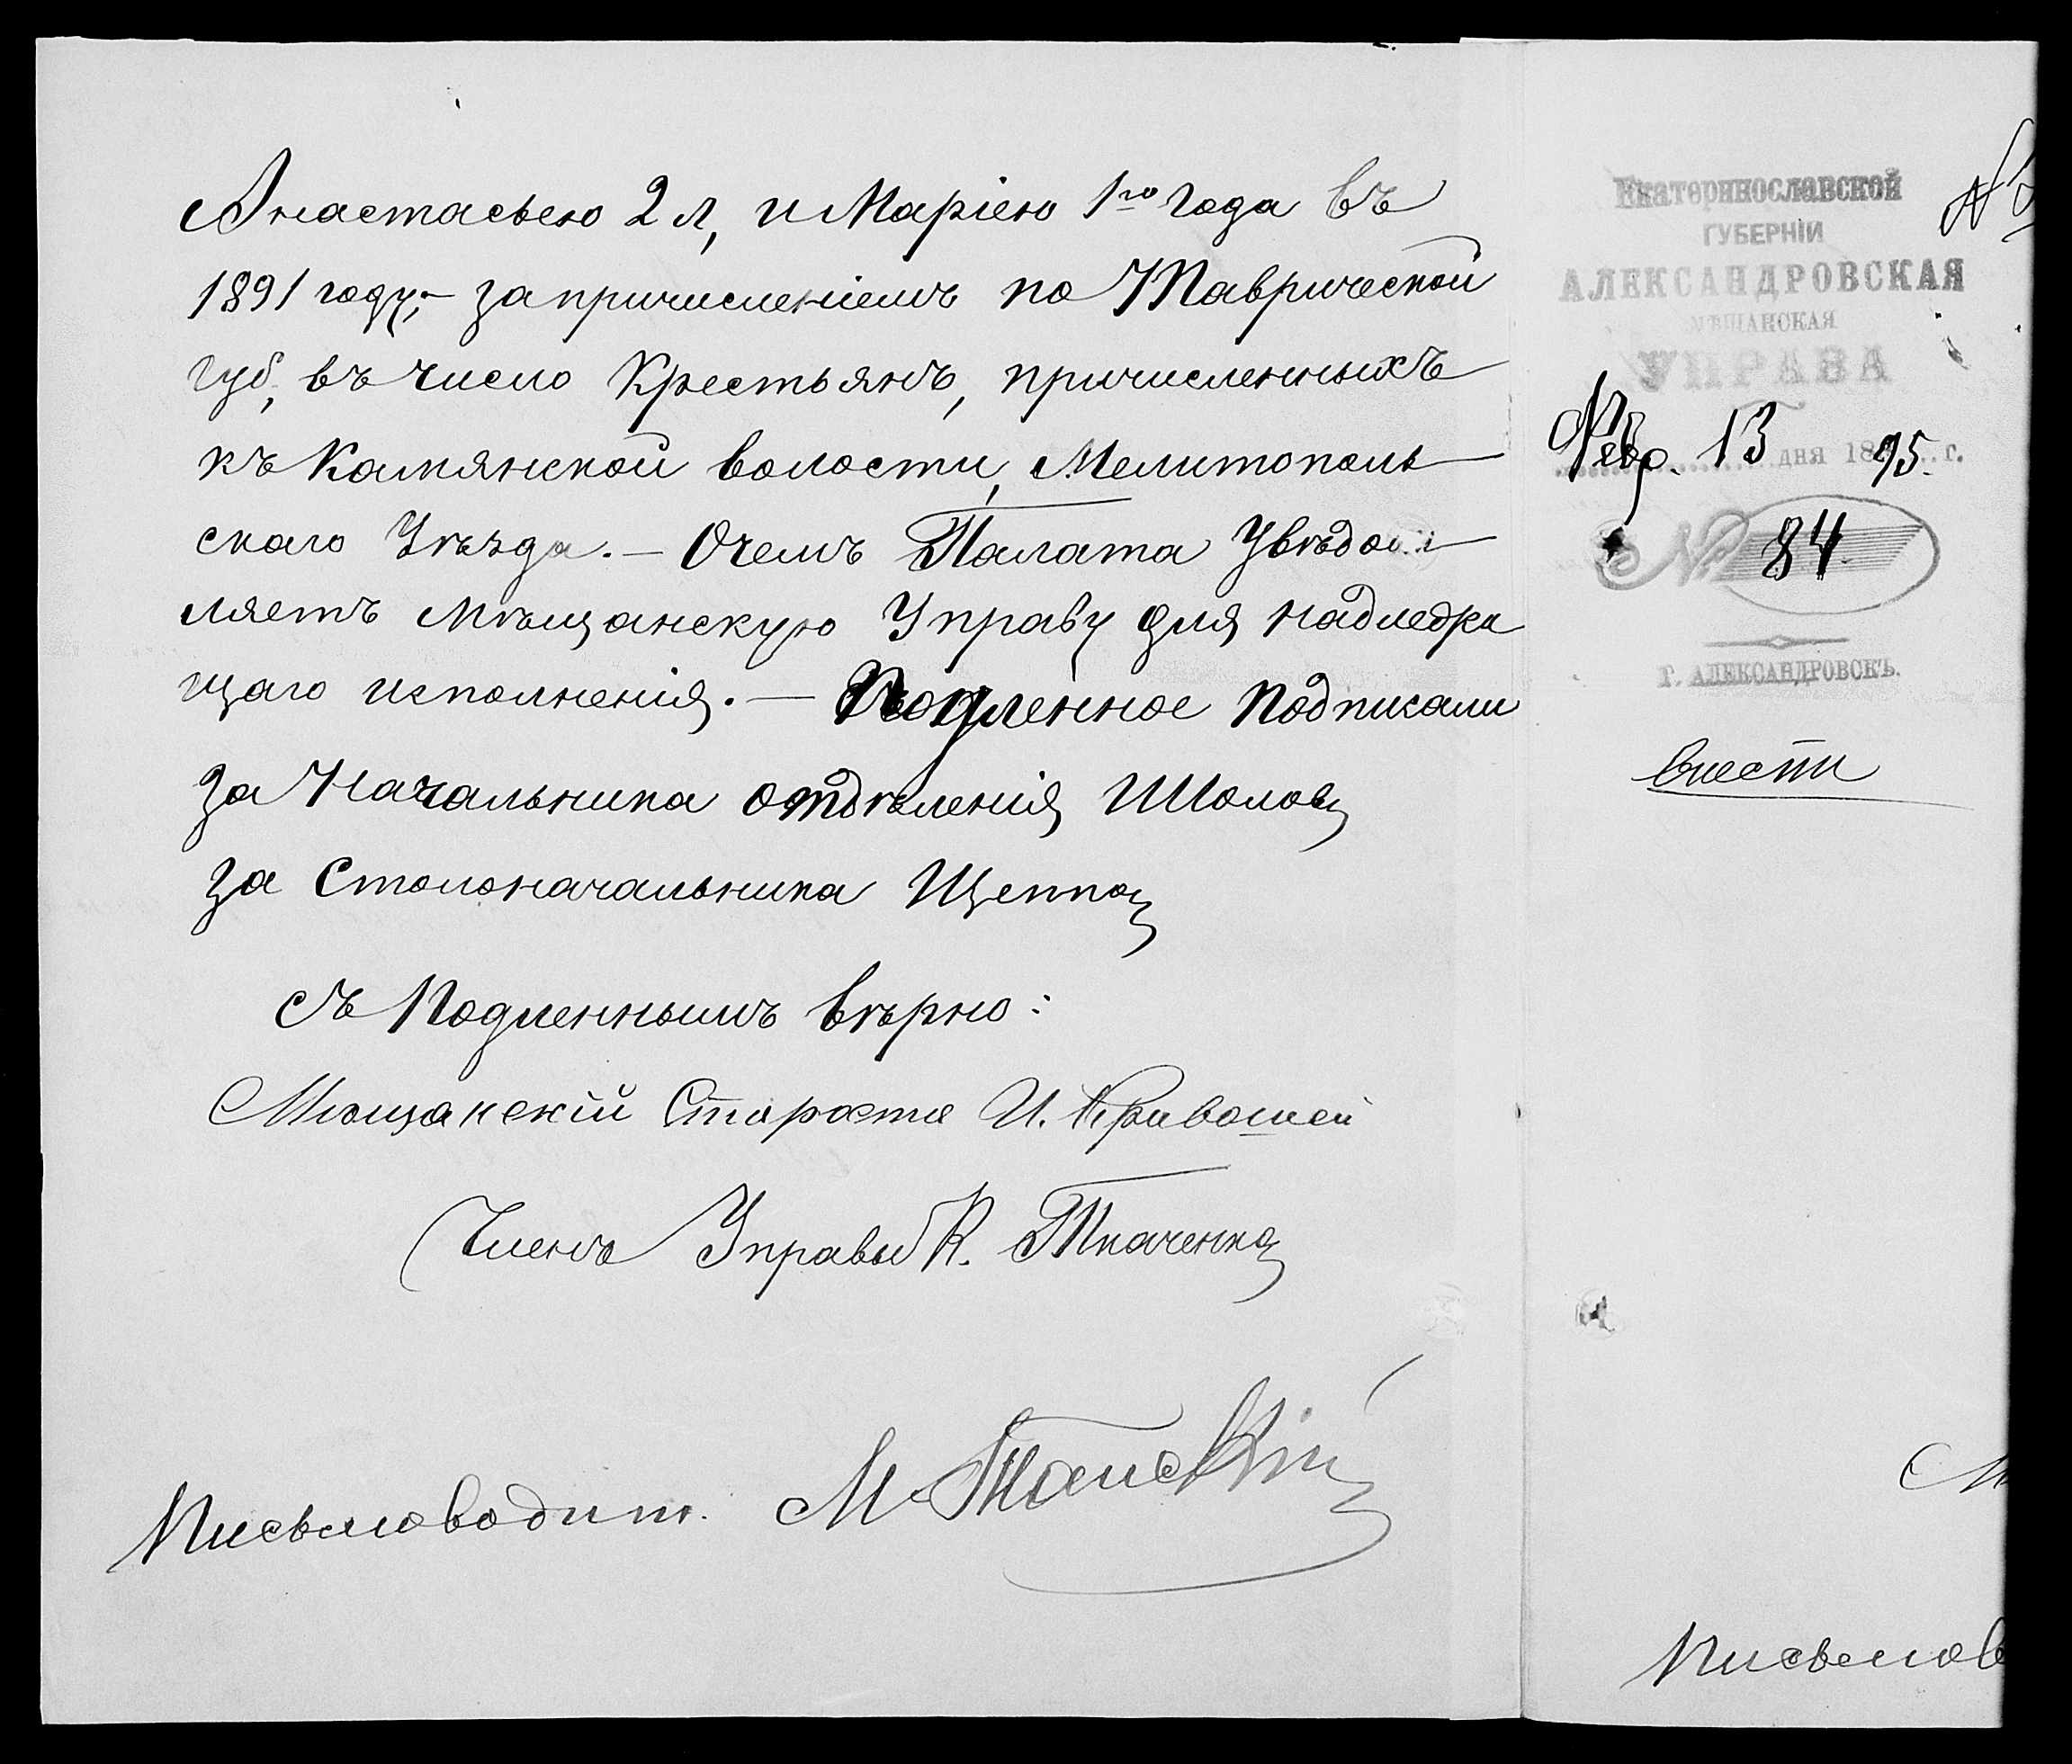 Анастасьею 2 л, и Маріею 1го года въ
1891 году,- за причисленіемъ по Таврической
губ, въ число Крестьянъ, причисленныхъ
къ Камянской волости, Мелитополь
скаго Уѣзда. - О чемъ Палата Увѣдом
ляетъ Мѣщанскую Управу для надлежа
щаго исполненія. - Подленное подписали
За Начальника отдѣленія
За Столоначальника
Съ Подленнымъ вѣрно:
Мѣщанскій Староста И. Кривошей
Членъ Управы К. Ткаченко
Письмоводит. М.
Екатеринославской
ГУБЕРНІИ
АЛЕКСАНДРОВСКАЯ
МѢЩАНСКАЯ
УПРАВА
Февр. 13 дня 1895 г.
№ 84
Г. АЛЕКСАНДРОВСКЪ.
внести
№
Письмов